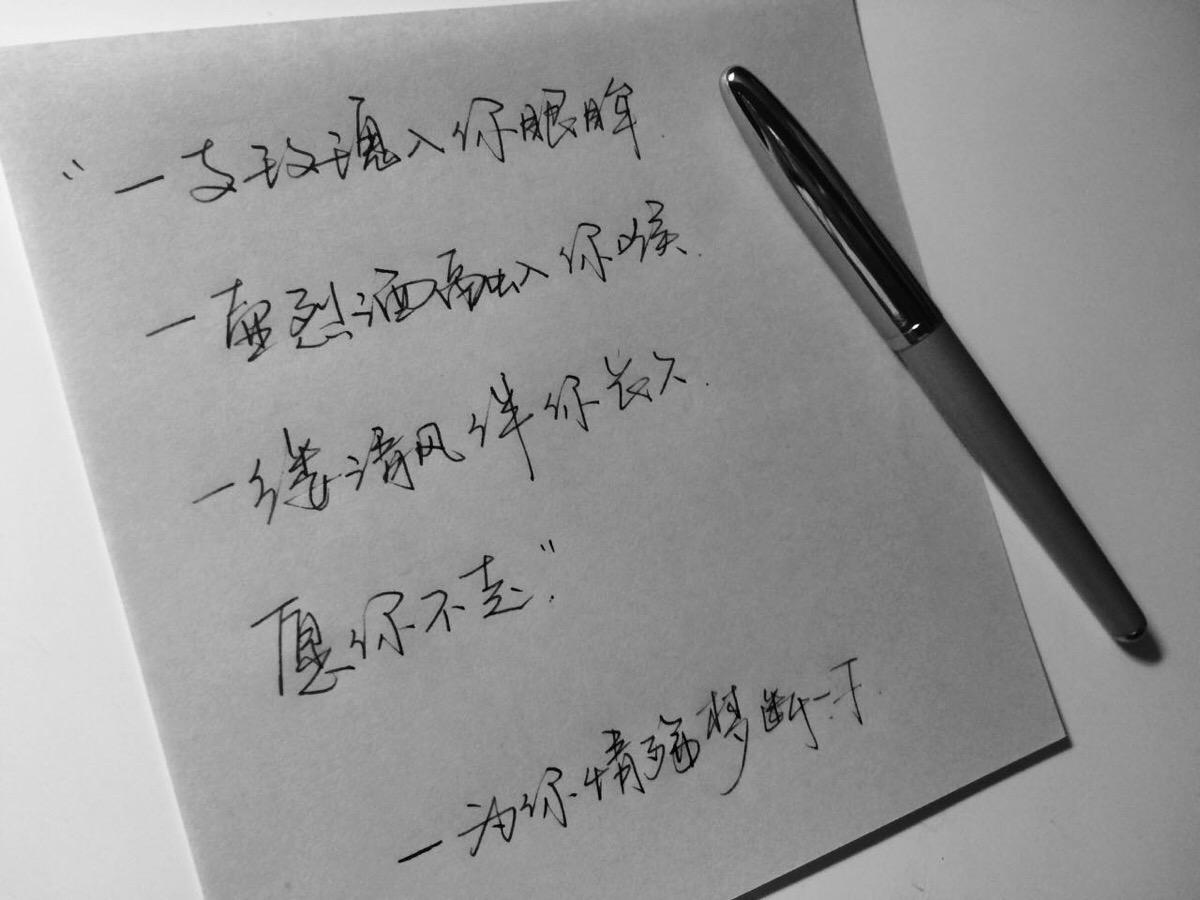 “一支玫瑰入你眼眸.
一壶烈酒隔山入你喉.
一缕清风伴你长久.
愿你不走”.
—为你情 梦断一千.